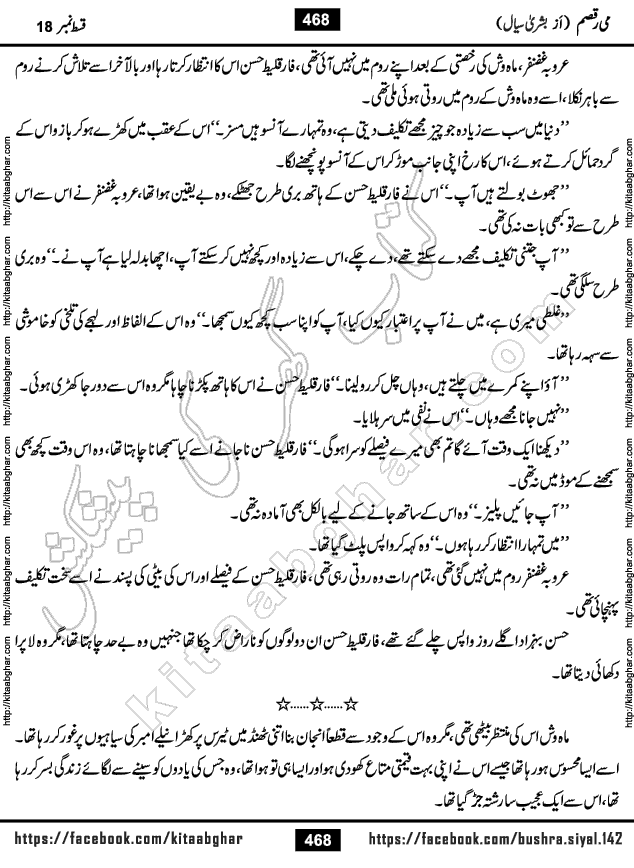 می رقصم (از بشریٰ سیال)
468
قسط نمبر 18
عروبہ غضنفر، ماہ وش کی رخصتی کے بعد اپنے روم میں نہیں آئی تھی، فارقلیط حسن اس کا انتظار کرتا رہا اور بالآخر اسے تلاش کرنے روم
سے باہر نکلا، اسے وہ ماہ وش کے روم میں روتی ہوئی ملی تھی۔
’’دنیا میں سب سے زیادہ جو چیز مجھے تکلیف دیتی ہے، وہ تمہارے آنسو ہیں مسز۔‘‘ اس کے عقب میں کھڑے ہو کر بازو اس کے
گرد حمائل کرتے ہوئے، اس کا رخ اپنی جانب موڑ کر اس کے آنسو پونچھنے لگا۔
’’جھوٹ بولتے ہیں آپ۔‘‘ اس نے فارقلیط حسن کے ہاتھ بری طرح جھٹکے، وہ بے یقین ہوا تھا، عروبہ غضنفر نے اس سے اس
طرح سے تو کبھی بات نہ کی تھی۔
’’آپ جتنی تکلیف مجھے دے سکتے تھے، دے چکے، اس سے زیادہ اور کچھ نہیں کر سکتے آپ، اچھا بدلہ لیا ہے آپ نے۔‘‘ وہ بری
طرح سلگی تھی۔
’’غلطی میری ہے، میں نے آپ پر اعتبار کیوں کیا، آپ کو اپنا سب کچھ کیوں سمجھا۔‘‘ وہ اس کے الفاظ اور لہجے کی تلخی کو خاموشی
سے سہہ رہا تھا۔
’’آؤ اپنے کمرے میں چلتے ہیں، وہاں چل کر رو لینا۔‘‘ فارقلیط حسن نے اس کا ہاتھ پکڑنا چاہا مگر وہ اس سے دور جا کھڑی ہوئی۔
’’نہیں جانا مجھے وہاں۔‘‘ اس نے نفی میں سر ہلایا۔
’’دیکھنا ایک وقت آئے گا تم بھی میرے فیصلے کو سراہو گی۔‘‘ فارقلیط حسن نا جانے اسے کیا سمجھانا چاہتا تھا، وہ اس وقت کچھ بھی
سمجھنے کے موڈ میں نہ تھی۔
’’آپ جائیں پلیز۔‘‘ وہ اس کے ساتھ جانے کے لیے بالکل بھی آمادہ نہ تھی۔
’’میں تمہارا انتظار کر رہا ہوں۔‘‘ وہ کہہ کر واپس پلٹ گیا تھا۔
عروبہ غضنفر روم میں نہیں گئی تھی، تمام رات وہ روتی رہی تھی، فارقلیط حسن کے فیصلے اور اس کی بیٹی کی پسند نے اسے سخت تکلیف
پہنچائی تھی۔
حسن بہزاد اگلے روز واپس چلے گئے تھے، فارقلیط حسن ان دو لوگوں کو ناراض کر چکا تھا جنہیں وہ بے حد چاہتا تھا، مگر وہ لا پرا
دکھائی دیتا تھا۔
☆......☆......☆
ماہ وش اس کی منتظر بیٹھی تھی، مگر وہ اس کے وجود سے قطعاً انجان بنا اتنی ٹھنڈ میں ٹیرس پر کھڑا نیلے امبر کی سیاہیوں پر غور کر رہا تھا۔
اسے ایسا محسوس ہو رہا تھا جیسے اس نے اپنی بہت قیمتی متاع کھو دی ہو اور ایسا ہی تو ہوا تھا، وہ جس کی یادوں کو سینے سے لگائے زندگی بسر کر رہا
تھا، اس سے ایک عجیب سا رشتہ جڑ گیا تھا۔
کتاب گھر کی پیشکش
kitaabghar.com
http://kitaabghar.com http://kitaabghar.com http://kitaabghar.com http://kitaabghar.com http://kitaabghar.com http://kitaabghar.com
http://kitaabghar.com http://kitaabghar.com http://kitaabghar.com http://kitaabghar.com http://kitaabghar.com http://kitaabghar.com
https://facebook.com/kitaabghar
468
https://facebook.com/bushra.siyal.142